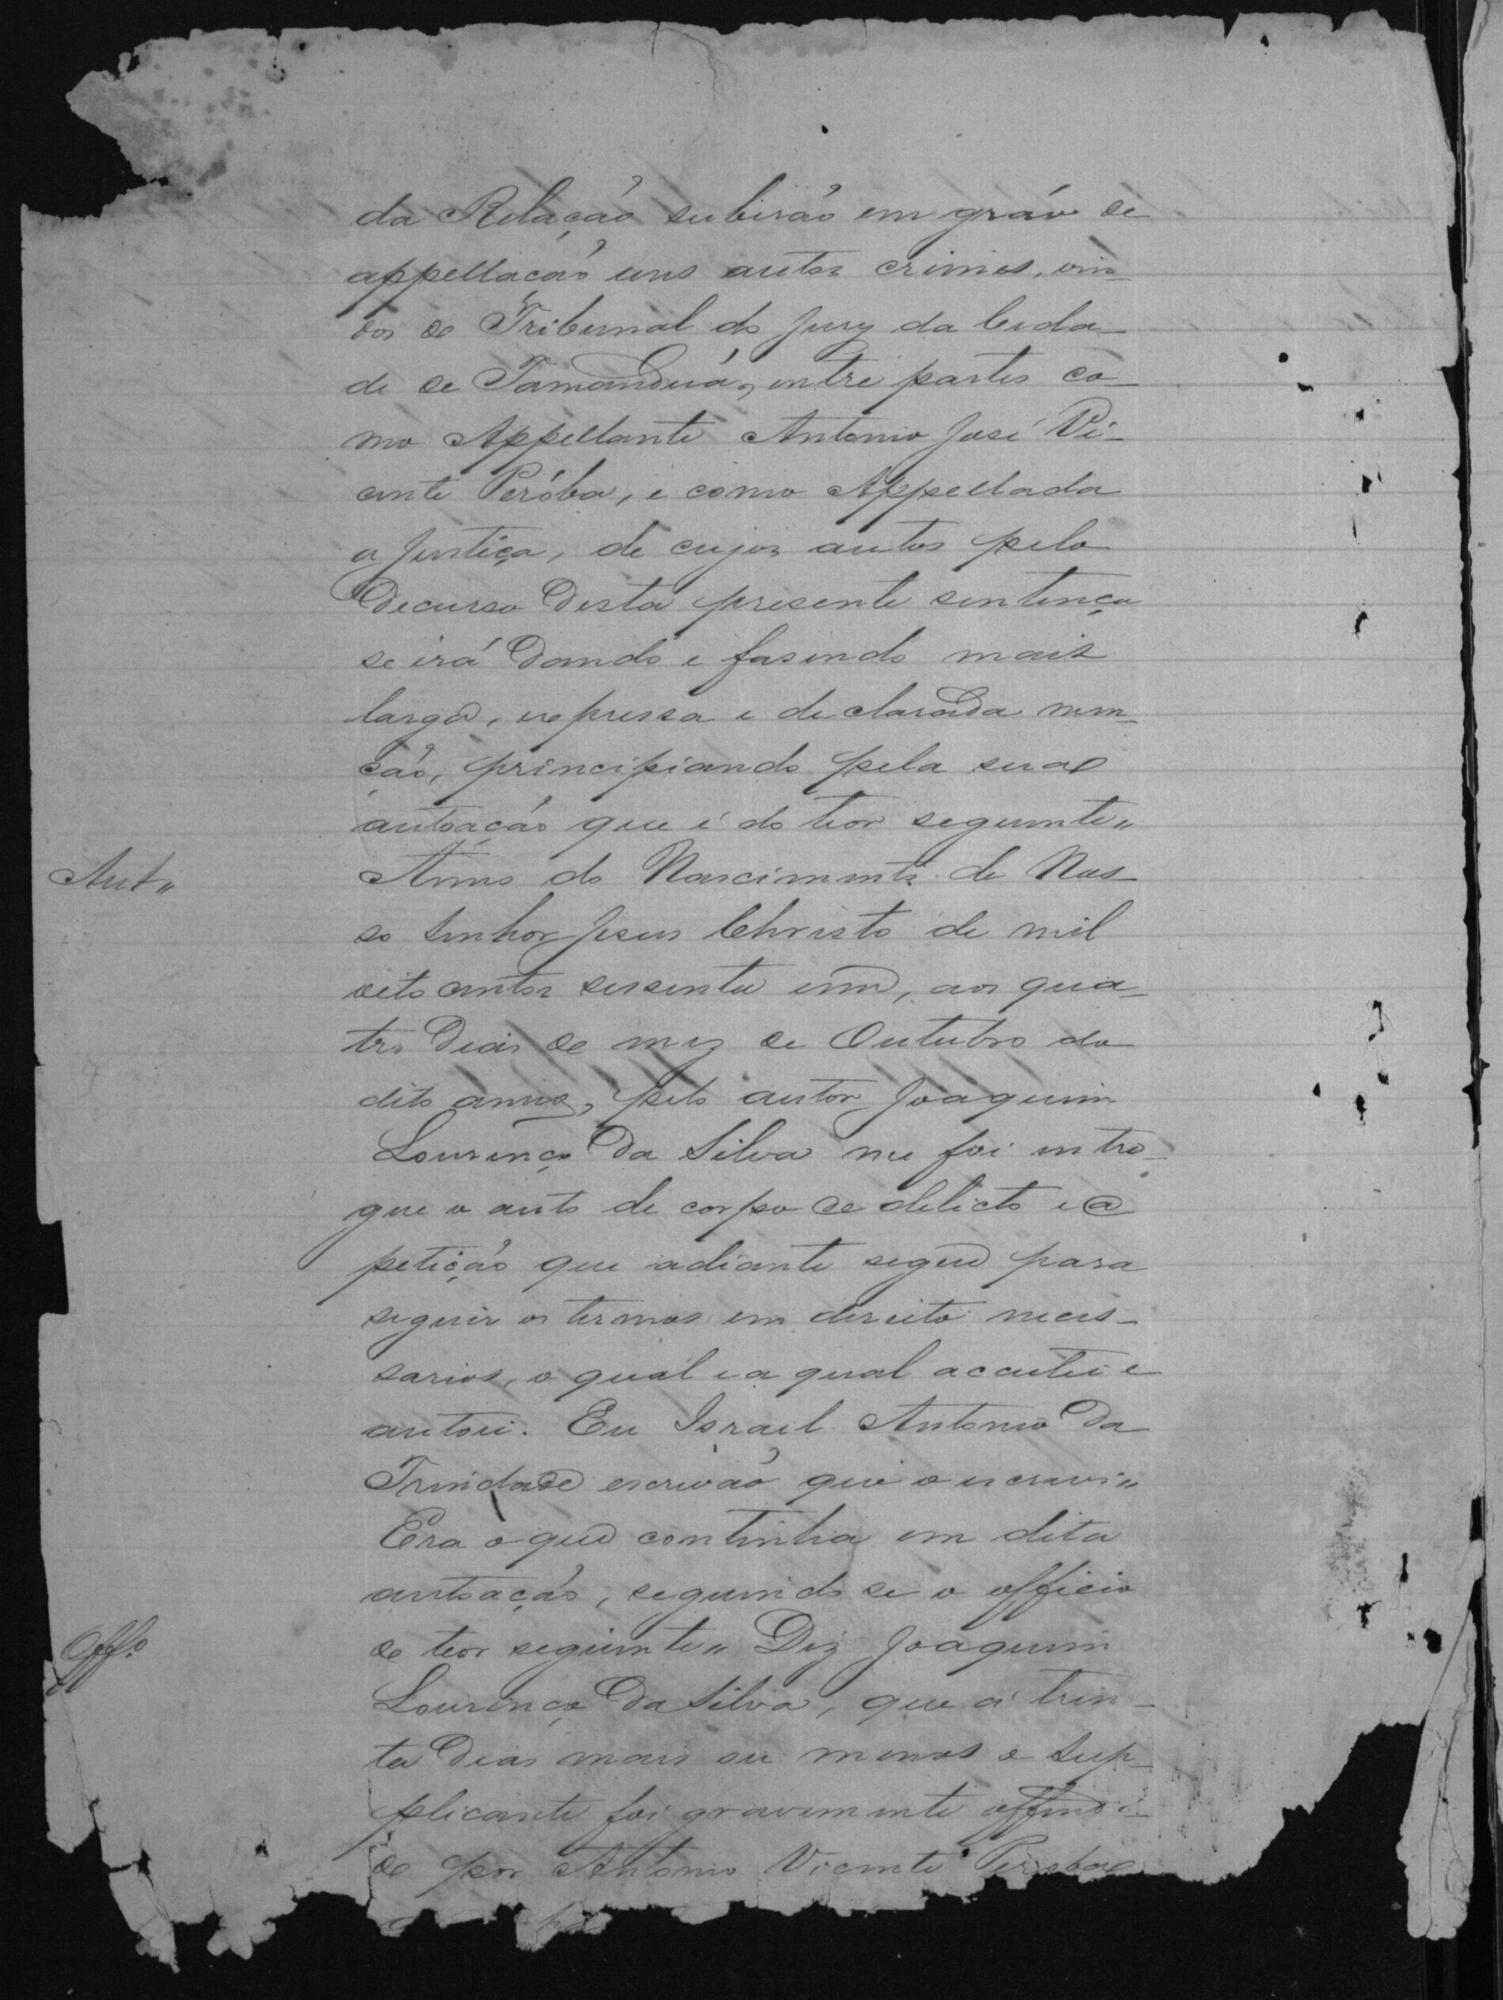 da Relação subirão em gráo de
appellação uns autos crimes, vin-
dos do Tribunal do Jury da Cida-
de de Tamanduá, entre partes co-
mo Appellante Antonio José Vi-
cente Peróba, e como Appellada
a Justiça, de cujos autos pelo
decurso desta presente sentença
se irá dando e fasendo mais
larga, expressa e declarada men-
ção, principiando pela sua
autoação que é do teor seguinte„
Aut„
Anno do Nascimento de Nos-
so Senhor Jesus Christo de mil
oito centos sessenta e um, aos qua-
tro dias do mez de Outubro do
dito anno, pelo autor Joaquim
Lourenço da Silva me foi entre-
gue o auto de corpo de delicto e a
petição que adiante segue para
seguir os termos em direito neces-
sarios, o qual e a qual acceitei e
autoei. Eu Israel Antonio da
Trindade escrivão que o escrevi„
Era o que continha em dita
autoação, seguindo se o officio
Offº
do teor seguinte„ Diz Joaquim
Lourenço da Silva, que a trin-
ta dias mais ou menos o Sup-
plicante foi gravemente offendi-
do por Antonio Vicente Peroba